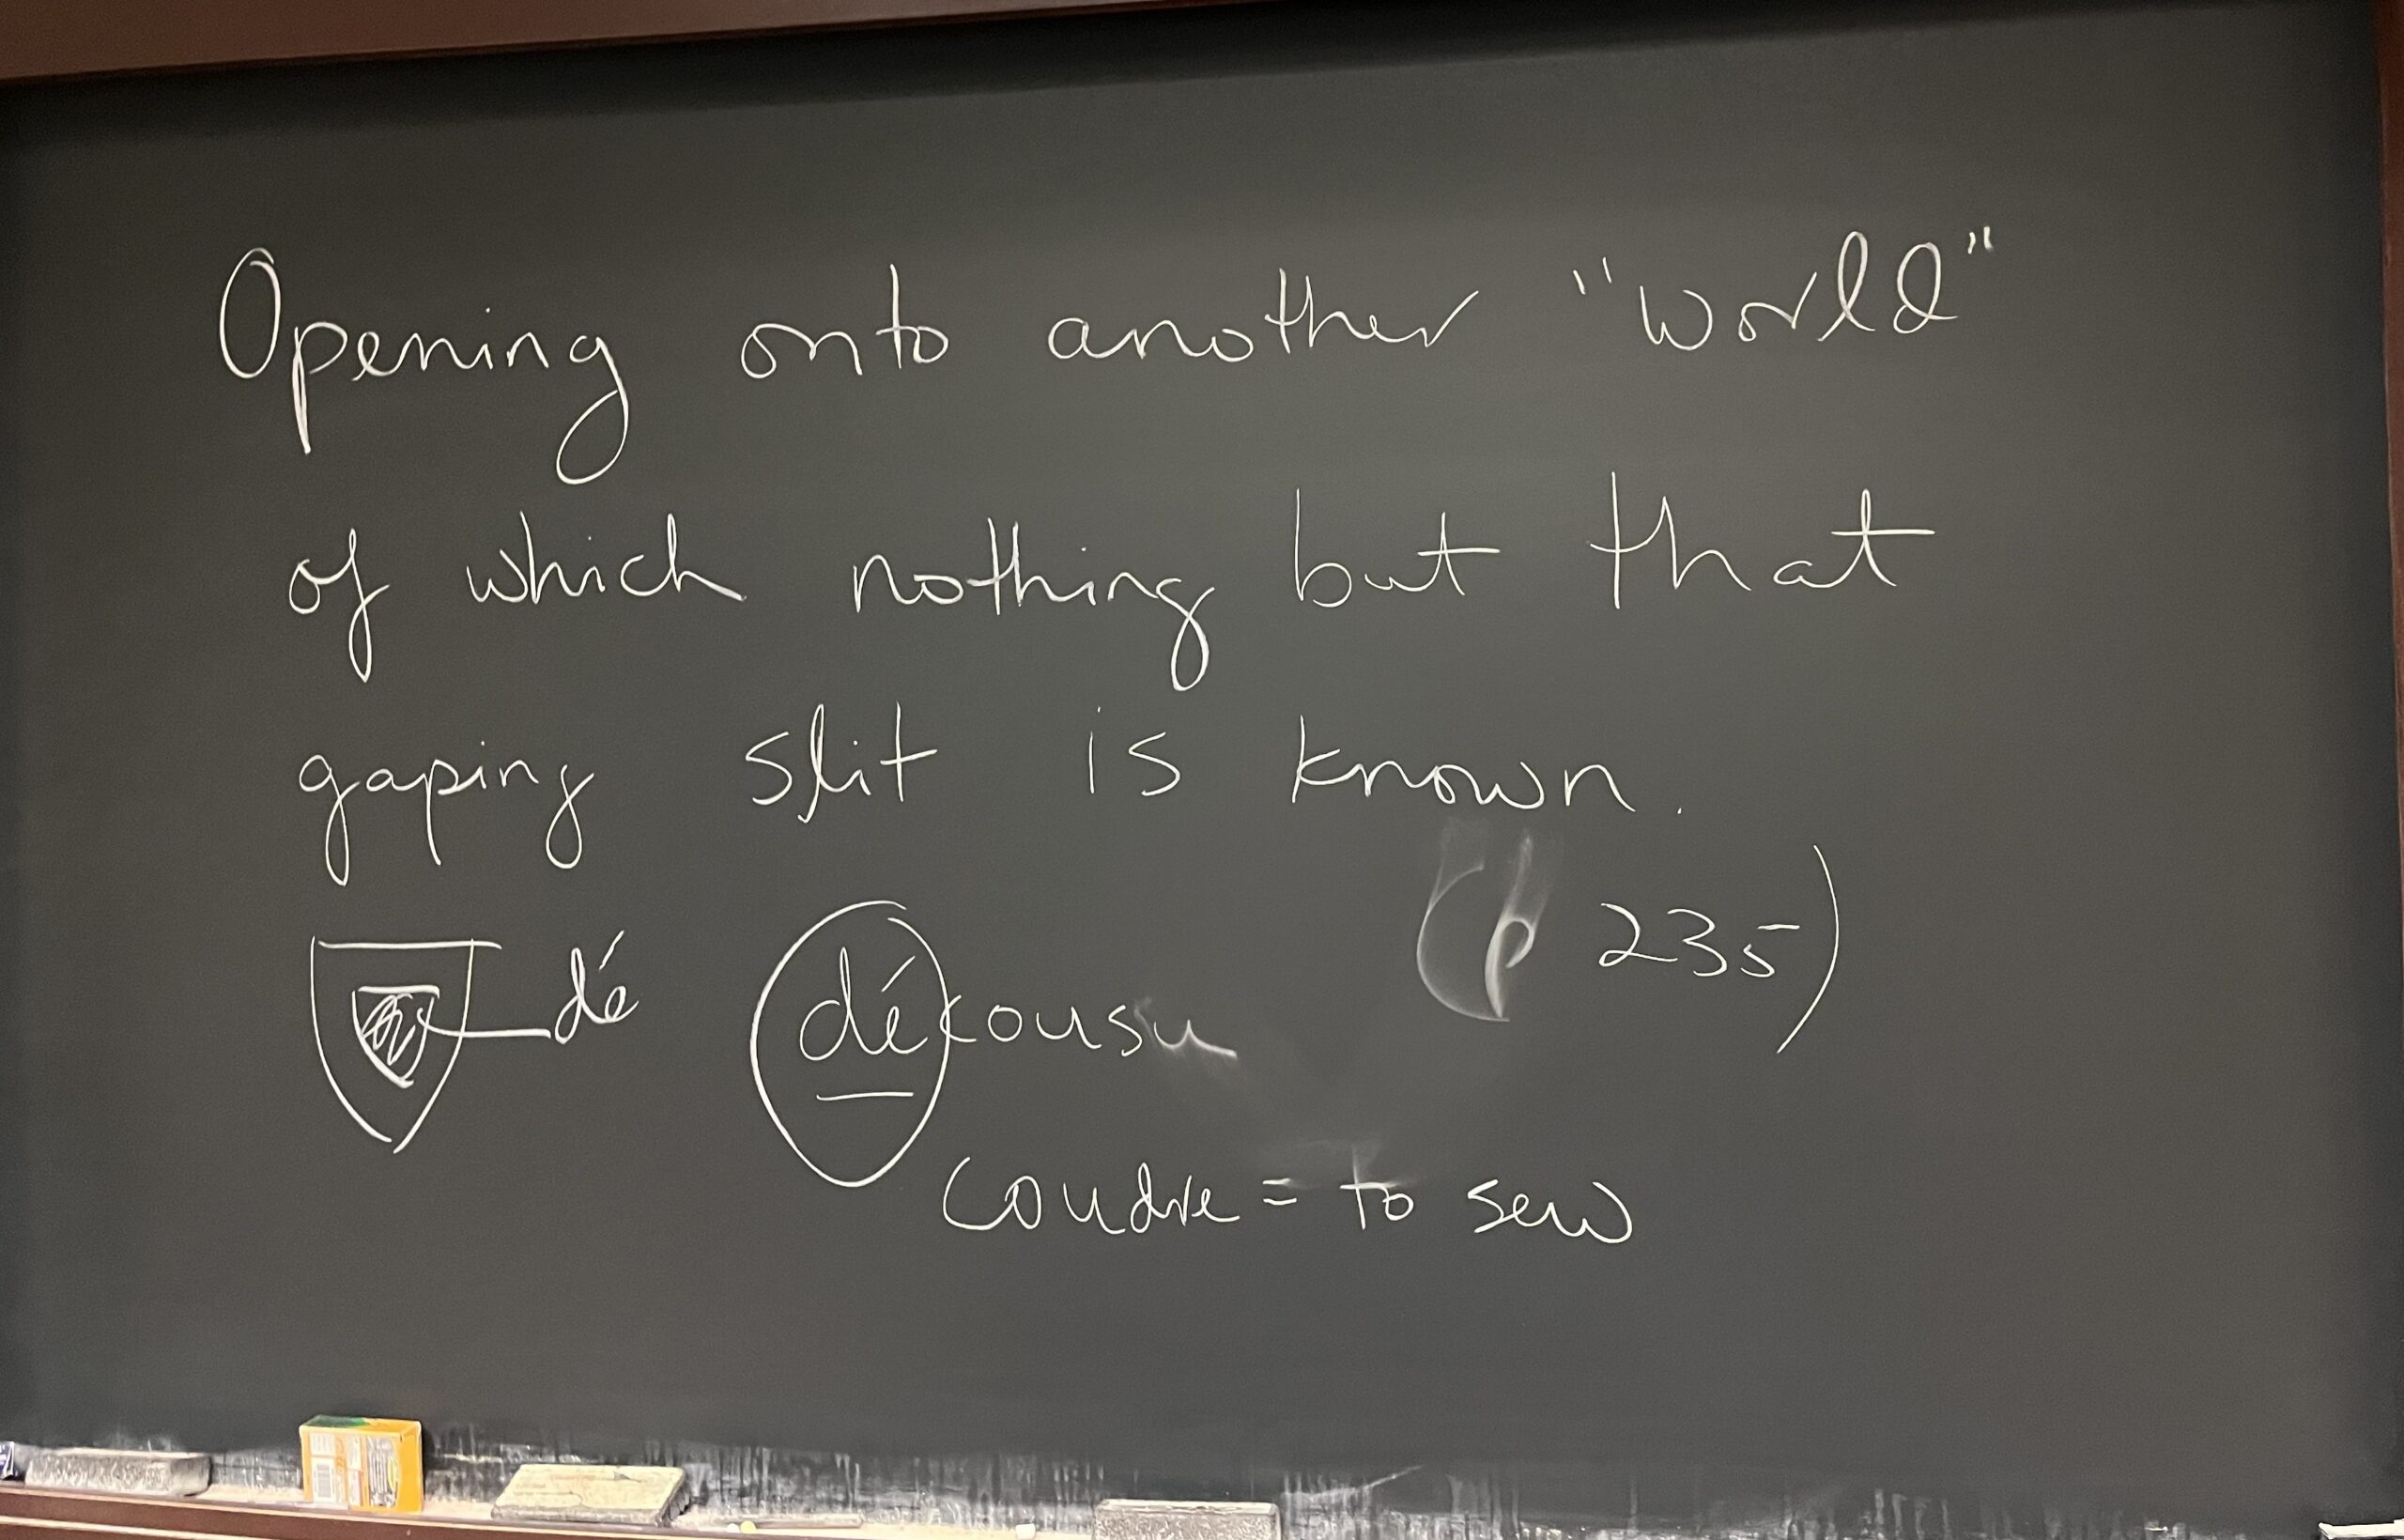 Opening onto another "world"
of which nothing but that
gaping slit is known.
(p 235)
dé
décousu
coudre = to sew